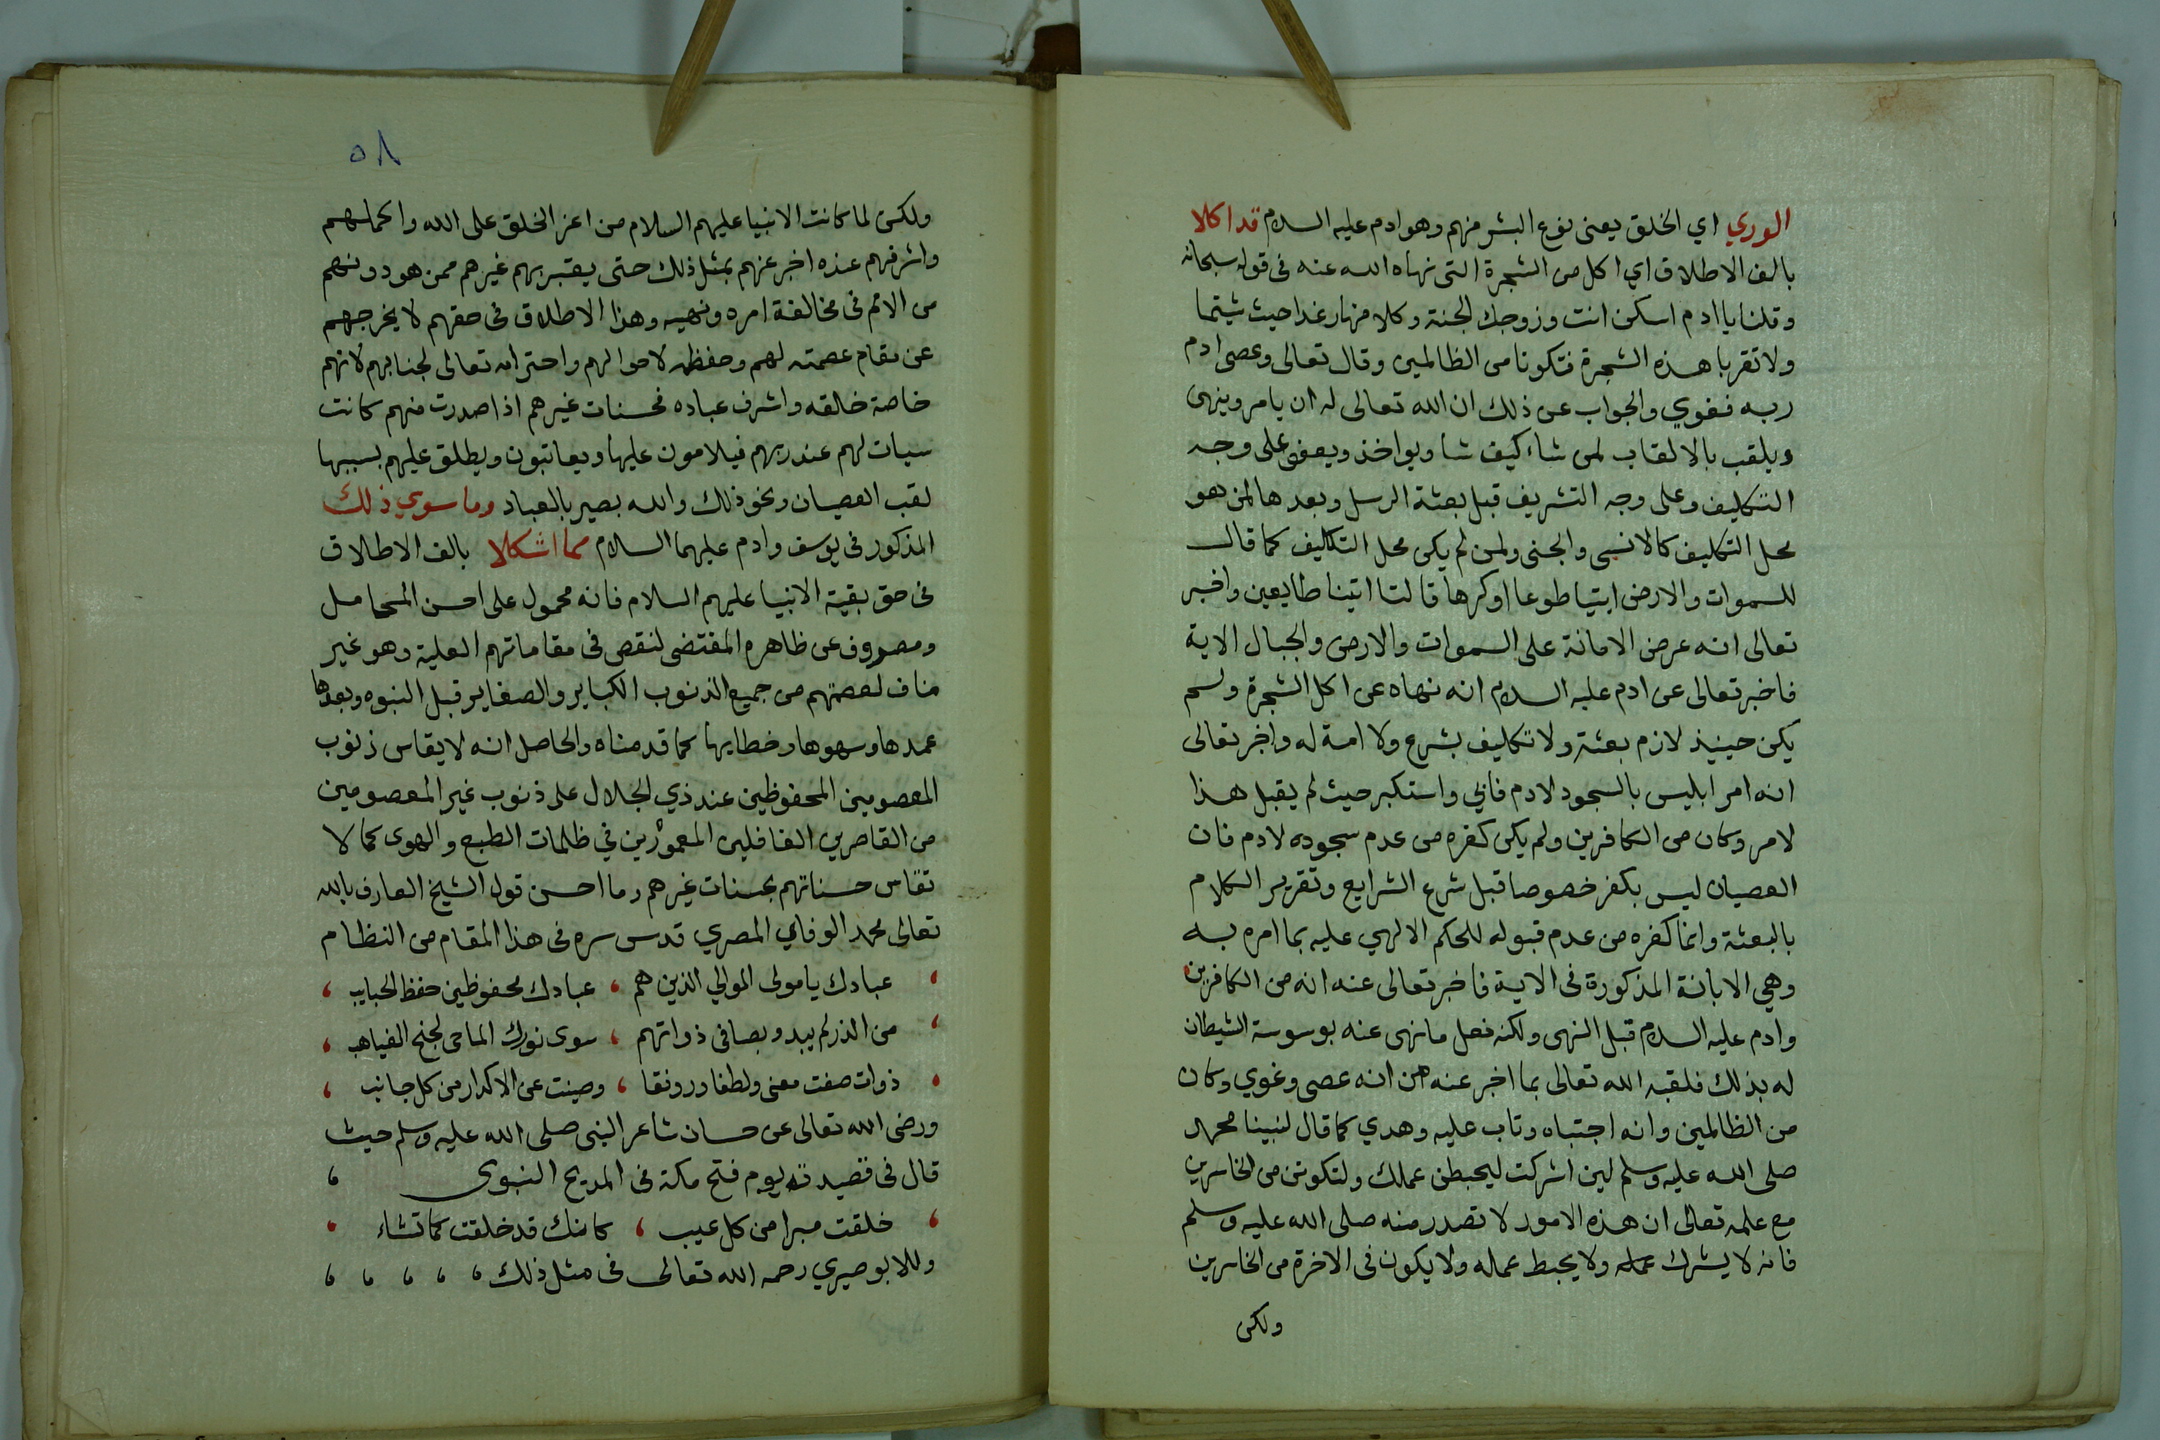 الوري اي الخلق يعني نوع البشر منهم وهو ادم عليه السلام قد اكلا
بالف الاطلاق اي اكل من الشجرة التي نهاه الله عنه في قوله سبحانه
وقلنا يا ادم اسكن انت وزوجك الجنة وكلا منها رغدا حيث شيتما
ولا تقربا هذه الشجرة فتكونا من الظالمين وقال تعالى وعصى ادم
ربه فغوي والجواب عن ذلك ان الله تعالى له ان يامر وينهى
ويلقب بالالقاب لمن شاء كيف شا ويواخذ ويعفو على وجه
التكليف وعلى وجه التشريف قبل بعثة الرسل وبعدها لمن هو
محل التكليف كالانسي والجني ولمن لم يكن محل التكليف كما قال
للسموات والارض ايتيا طوعا او كرها قالتا اتينا طايعين واخبر
تعالى انه عرض الامانة على السموات والارض والجبال الاية
فاخبر تعالى عن ادم عليه السلام انه نهاه عن اكل الشجرة ولم
يكن حينيذ لازم بعثة ولا تكليف بشرع ولا امة له واخبر تعالى
انه امر ابليس بالسجود لادم فابي واستكبر حيث لم يقبل هذا
لامر وكان من الكافرين ولم يكن كفره من عدم سجوده لادم فان
العصيان ليس بكفر خصوصا قبل شرع الشرايع وتقرير الكلام
بالبعثة وانما كفره من عدم قبوله للحكم الالهي عليه بما امره به
وهي الابانة المذكورة في الاية فاخبر تعالى عنه انه من الكافرين
وادم عليه السلام قبل النهى ولكنه فعل ما نهى عنه بوسوسة الشيطان
له بذلك فلقبه الله تعالى بما اخبر عنه من انه عصى وغوي وكان
من الظالمين وانه اجتباه وتاب عليه وهدي كما قال لنبينا محمد
صلى الله عليه وسلم لين اشركت ليحبطن عملك ولتكونن من الخاسرين
مع علمه تعالى ان هذه الامور لا تصدر منه صلى الله عليه وسلم
فانه لا يشرك عمله ولا يحبط عمله ولا يكون في الاخرة من الخاسرين
ولكن
٥٨
ولكن لما كانت الانبيا عليهم السلام من اعز الخلق على الله واكملهم
واشرفهم عنده اخبر عنهم بمثل ذلك حتى يعتبر بهم غيرهم ممن هو دونهم
من الامم في مخالفة امره ونهيه وهذا الاطلاق في حقهم لا يخرجهم
عن مقام عصمته لهم وحفظه لاحوالهم واحترامه تعالى لجنابهم لانهم
خاصة خالقه واشرف عباده فحسنات غيرهم اذا صدرت منهم كانت
سيات لهم عند ربهم فيلامون عليها ويعاتبون ويطلق عليهم بسببها
لقب العصيان ونحو ذلك والله بصير بالعباد وما سوي ذلك
المذكور في يوسف وادم عليهما السلام مما اشكلا بالف الاطلاق
في حق بقية الانبيا عليهم السلام فانه محمول على احسن المحامل
ومصروف عن ظاهره المقتضى لنقص في مقاماتهم العلية وهو غير
مناف لعصمتهم من جميع الذنوب الكباير والصغاير قبل النبوه وبعدها
عمدها وسهوها وخطايها كما قدمناه والحاصل انه لا يقاس ذنوب
المعصومين المحفوظين عند ذي الجلال على ذنوب غير المعصومين
من القاصرين الغافلين المغمورين في ظلمات الطبع والهوى كما لا
تقاس حسناتهم بحسنات غيرهم وما احسن قول الشيخ العارف بالله
تعالى محمد الوفاي المصري قدس سره في هذا المقام من النظام
عبادك يا مولى الموالي الذين هم ، عبادك محفوظين حفظ الحبايب ،
من الذر لم يبدو بصافي ذواتهم ، سوى نورك الماحي لجنح الغياهب ،
ذوات صفت معنى ولطفا ورونقا ، وصينت عن الاكدار من كل جانب ،
ورضى الله تعالى عن حسان شاعر النبي صلى الله عليه وسلم حيث
قال في قصيدته يوم فتح مكة في المديح النبوي ،
خلقت مبرا من كل عيب ، كانك قد خلقت كما تشاء
وللابوصيري رحمه الله تعالى في مثل ذلك ، ، ، ، ،